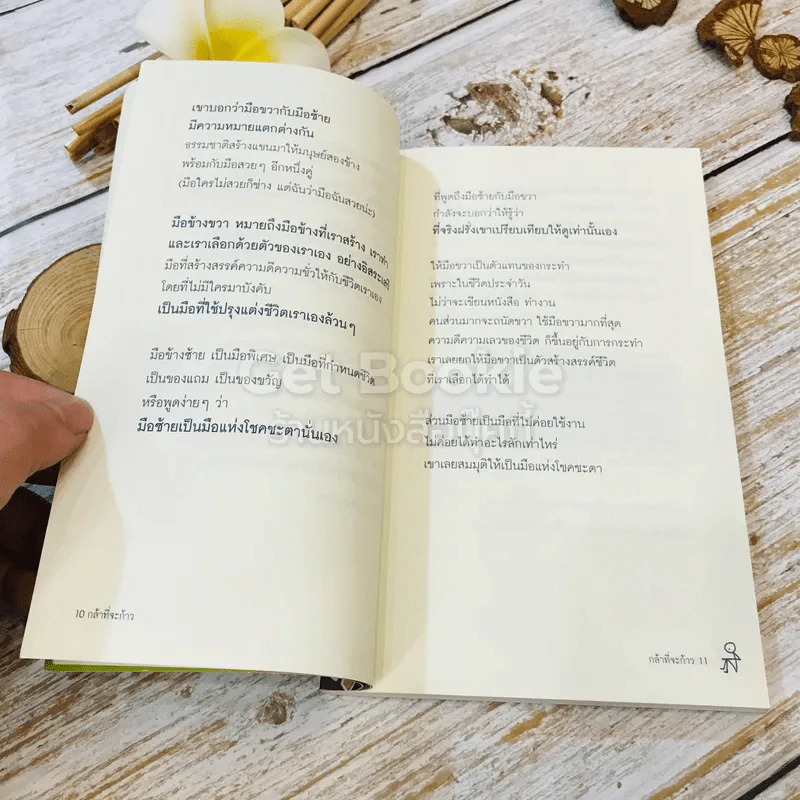 เขาบอกว่ามือขวากับมือซ้าย
มีความหมายแตกต่างกัน
ธรรมชาติสร้างแขนมาให้มนุษย์สองข้าง
พร้อมกับมือสวยๆ อีกหนึ่งคู่
(มือใครไม่สวยก็ช่าง แต่ฉันว่ามือฉันสวยน่ะ)
มือข้างขวา หมายถึงมือข้างที่เราสร้าง เราทำ
และเราเลือกด้วยตัวของเราเอง อย่างอิสระเสรี
มือที่สร้างสรรค์ความดีความชั่วให้กับชีวิตเราเอง
โดยที่ไม่มีใครมาบังคับ
เป็นมือที่ใช้ปรุงแต่งชีวิตเราเองล้วนๆ
มือข้างซ้าย เป็นมือพิเศษ เป็นมือที่กำหนดชีวิต
เป็นของแถม เป็นของขวัญ
หรือพูดง่ายๆ ว่า
มือซ้ายเป็นมือแห่งโชคชะตานั่นเอง
10 กล้าที่จะก้าว
ที่พูดถึงมือซ้ายกับมือขวา
กำลังจะบอกว่าให้รู้ว่า
ที่จริงฝรั่งเขาเปรียบเทียบให้ดูเท่านั้นเอง
ให้มือขวาเป็นตัวแทนของกระทำ
เพราะในชีวิตประจำวัน
ไม่ว่าจะเขียนหนังสือ ทำงาน
คนส่วนมากจะถนัดขวา ใช้มือขวามากที่สุด
ความดีความเลวของชีวิต ก็ขึ้นอยู่กับการกระทำ
เราเลยยกให้มือขวาเป็นตัวสร้างสรรค์ชีวิต
ที่เราเลือกได้ทำได้
ส่วนมือซ้ายเป็นมือที่ไม่ค่อยใช้งาน
ไม่ค่อยได้ทำอะไรสักเท่าไหร่
เขาเลยสมมุติให้เป็นมือแห่งโชคชะตา
กล้าที่จะก้าว 11
Get Bookie